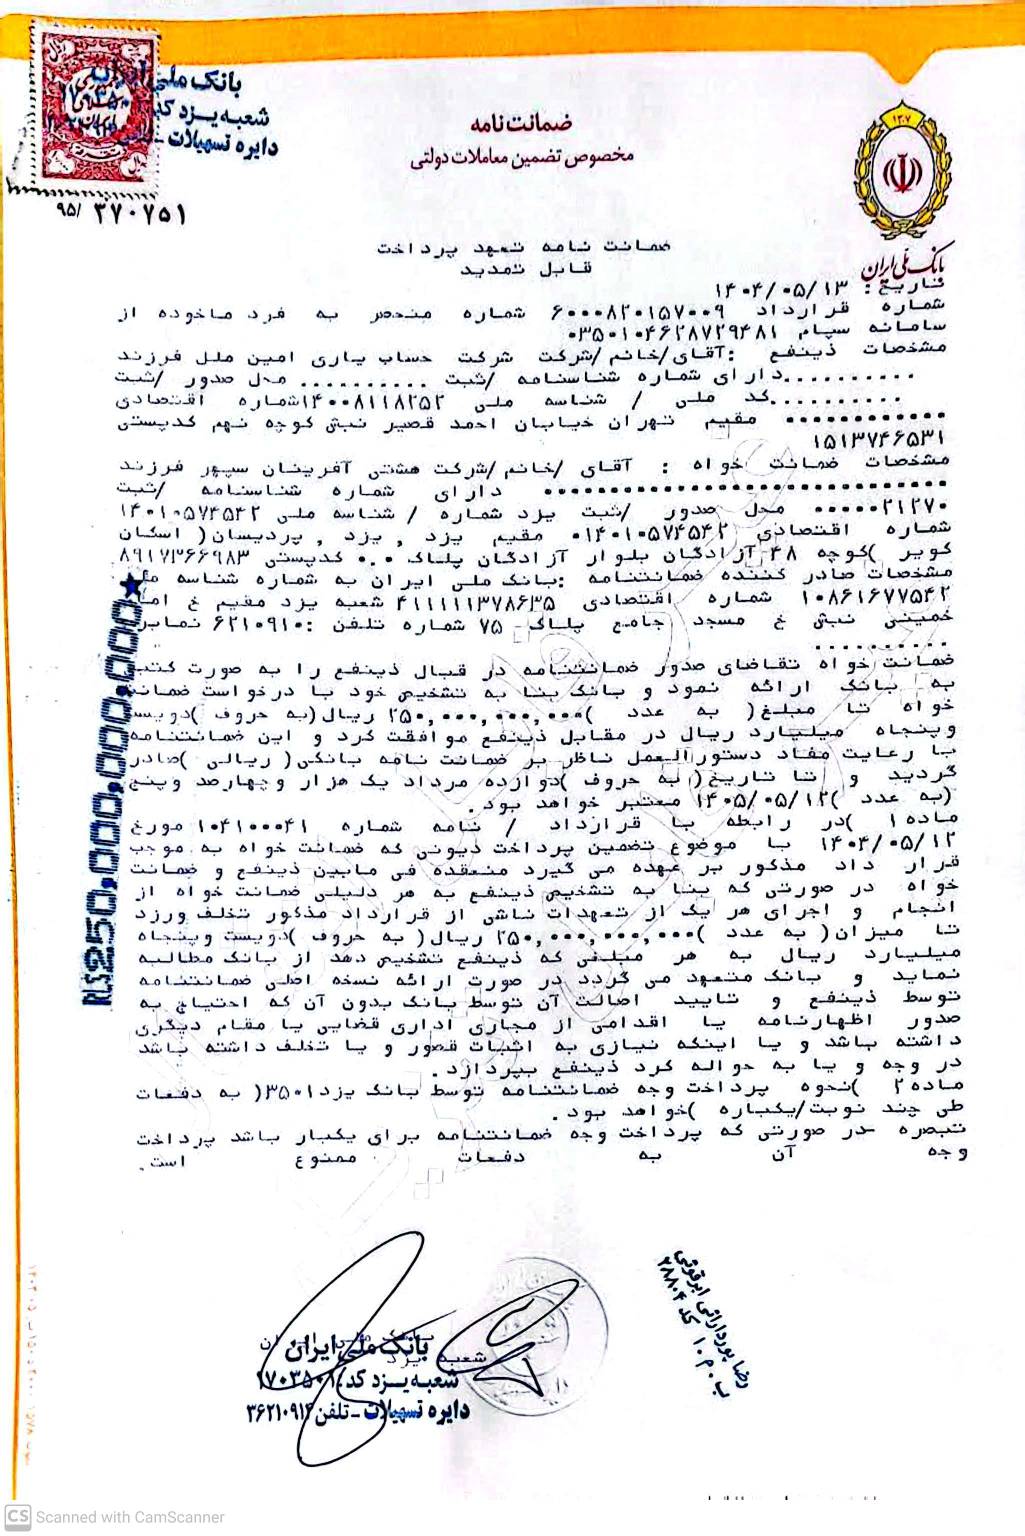 بانک ملی ایران
شعبه یزد کد
دایره تسهیلات
۹۵/ ۳۷۰۷۵۱
ضمانت نامه
مخصوص تضمین معاملات دولتی
۱۳۰۷
بانک ملی ایران
ضمانت نامه تعهد پرداخت
قابل تمدید
تاریخ: ۱۴۰۴/۰۵/۱۳
شماره قرارداد ۶۰۰۰۸۲۰۱۵۷۰۰۹ شماره منحصر به فرد ماخوده از
سامانه سپام ۰۳۵۰۱۰۴۶۲۸۷۲۹۴۸۱
مشخصات ذینفع :آقای/خانم/شرکت شرکت حساب یاری امین ملل فرزند
..........دارای شماره شناسنامه /ثبت .......... محل صدور /ثبت
..........کد ملی / شناسه ملی ۱۴۰۰۸۱۱۸۲۵۲شماره اقتصادی
........... مقیم تهران خیابان احمد قصیر نبش کوچه نهم کدپستی
۱۵۱۳۷۴۶۵۳۱
مشخصات ضمانت خواه : آقای /خانم /شرکت هشتی آفرینان سپهر فرزند
............................ دارای شماره شناسنامه /ثبت
۰۰۰۰۰۲۱۲۷۰ محل صدور /ثبت یزد شماره / شناسه ملی ۱۴۰۱۰۵۷۴۵۴۲
شماره اقتصادی ۰۱۴۰۱۰۵۷۴۵۴۲ مقیم یزد , یزد , پردیسان( اسکان
کویر )کوچه ۴۸ آزادگان بلوار آزادگان پلاک ۰.۰ کدپستی ۸۹۱۷۳۶۶۹۸۳
مشخصات صادر کننده ضمانتنامه :بانک ملی ایران به شماره شناسه ملی
۱۰۸۶۱۶۷۷۵۴۲ شماره اقتصادی ۴۱۱۱۱۱۳۷۸۶۳۵ شعبه یزد مقیم خ امام
خمینی نبش خ مسجد جامع پلاک ۷۵ شماره تلفن :۶۲۱۰۹۱۰ نمابر
..........
ضمانت خواه تقاضای صدور ضمانتنامه در قبال ذینفع را به صورت کتبی
به بانک ارائه نمود و بانک بنا به تشخیص خود با درخواست ضمانت
خواه تا مبلغ( به عدد )۲۵۰,۰۰۰,۰۰۰,۰۰۰ ریال(به حروف )دویست
وپنجاه میلیارد ریال در مقابل ذینفع موافقت کرد و این ضمانتنامه
با رعایت مفاد دستورالعمل ناظر بر ضمانت نامه بانکی( ریالی )صادر
گردید و تا تاریخ( به حروف )دوازده مرداد یک هزار وچهارصد وپنج
(به عدد )۱۴۰۵/۰۵/۱۲ معتبر خواهد بود.
ماده۱ )در رابطه با قرارداد / نامه شماره ۱۰۴۱۰۰۰۴۱ مورخ
۱۴۰۴/۰۵/۱۲ با موضوع تضمین پرداخت دیونی که ضمانت خواه به موجب
قرار داد مذکور بر عهده می گیرد منعقده فی مابین ذینفع و ضمانت
خواه در صورتی که بنا به تشخیص ذینفع به هر دلیلی ضمانت خواه از
انجام و اجرای هر یک از تعهدات ناشی از قرارداد مذکور تخلف ورزد
تا میزان( به عدد )۲۵۰,۰۰۰,۰۰۰,۰۰۰ ریال( به حروف )دویست وپنجاه
میلیارد ریال به هر مبلغی که ذینفع تشخیص دهد از بانک مطالبه
نماید و بانک متعهد می گردد در صورت ارائه نسخه اصلی ضمانتنامه
توسط ذینفع و تایید اصالت آن توسط بانک بدون آن که احتیاج به
صدور اظهارنامه یا اقدامی از مجاری اداری قضایی یا مقام دیگری
داشته باشد و یا اینکه نیازی به اثبات قصور و یا تخلف داشته باشد
در وجه و یا به حواله کرد ذینفع بپردازد.
ماده۲ )نحوه پرداخت وجه ضمانتنامه توسط بانک یزد۳۵۰۱( به دفعات
طی چند نوبت/یکباره )خواهد بود.
تبصره -در صورتی که پرداخت وجه ضمانتنامه برای یکبار باشد پرداخت
وجه آن به دفعات ممنوع است.
RLS250,000,000,000★
بانک ملی ایران
شعبه یزد کد ۱۷۰۳۵۰۱
دایره تسهیلات - تلفن ۳۶۲۱۰۹۱۴
رضا پوردارائی ابرقوئی
ب . م . ۱۰ کد ۲۸۸۰۴
CS Scanned with CamScanner